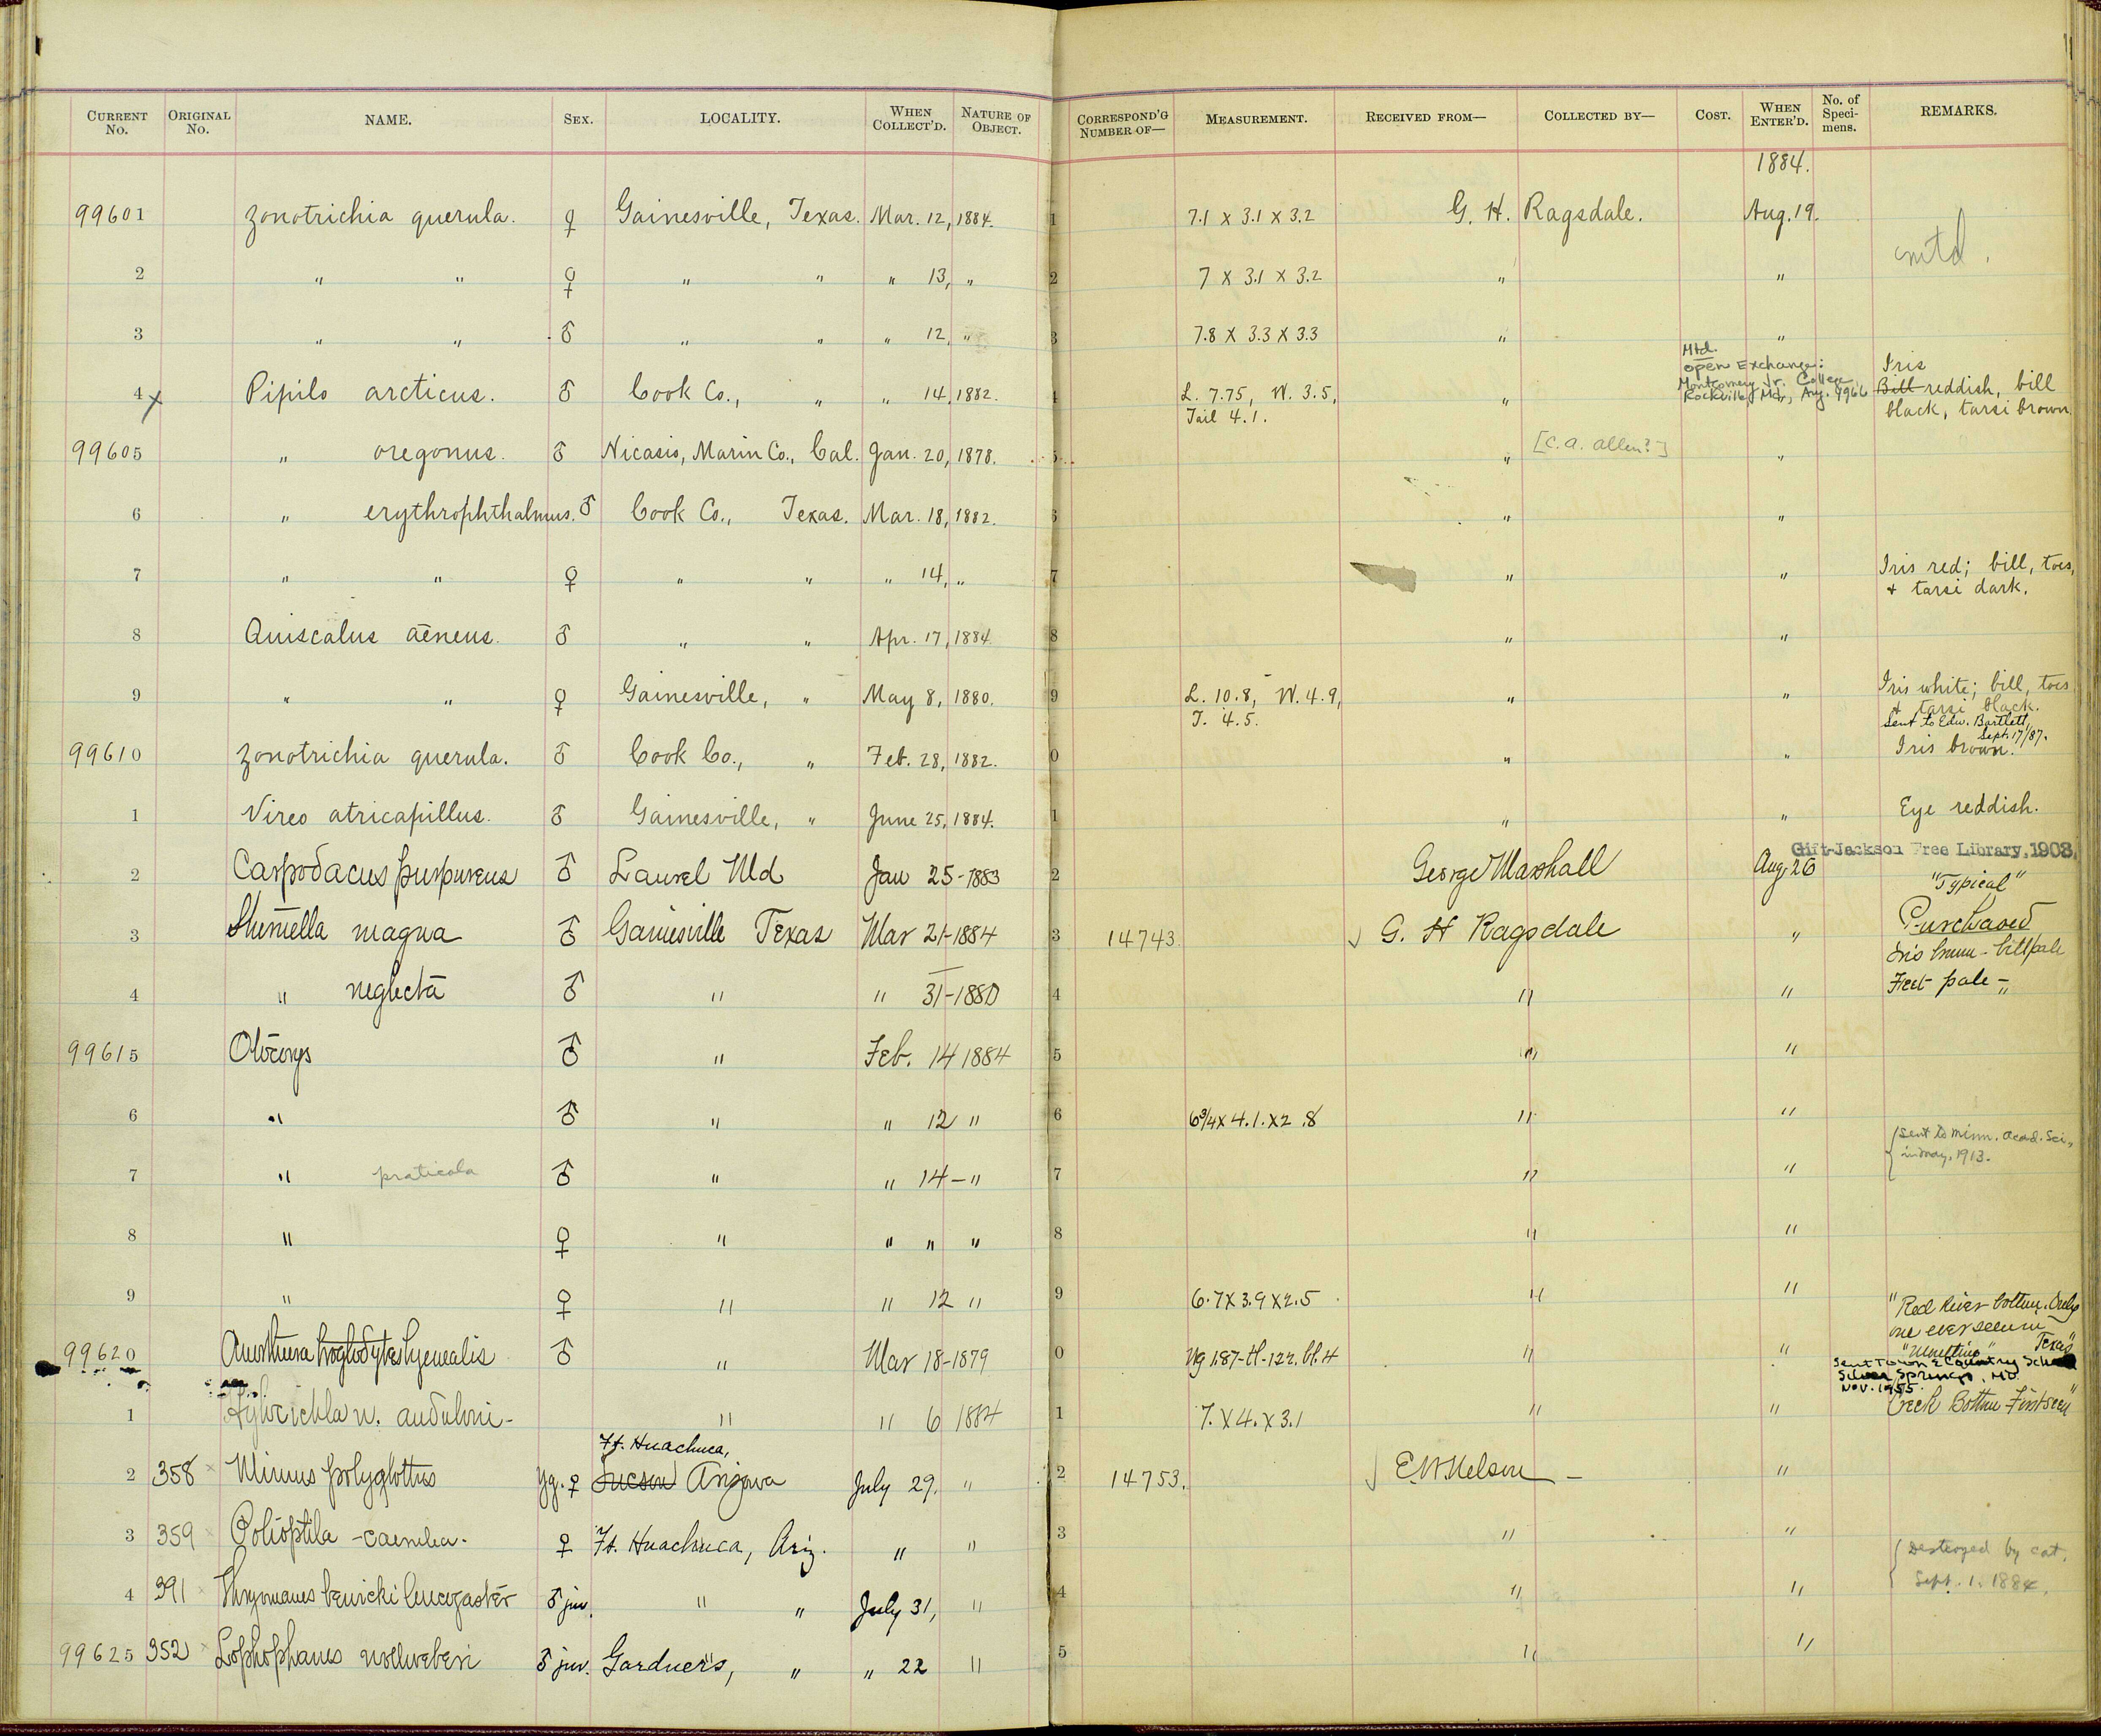 CURRENT No. ORIGINAL No. NAME. SEX. LOCALITY. WHEN COLLECT'D. NATURE OF OBJECT. CORRESPOND'G NUMBER OF— MEASUREMENT. RECEIVED FROM— COLLECTED BY— COST. WHEN ENTER'D. No. of Speci-mens. REMARKS.
1884.
99601 Zonotrichia querula. ♀ Gainesville, Texas. Mar. 12, 1884. 1 7.1 x 3.1 x 3.2 G. H. Ragsdale. Aug. 19.
mtd.
2 " " ♀ " " " 13, " 2 7 x 3.1 x 3.2 " "
3 " " ♂ " " " 12, " 3 7.8 x 3.3 x 3.3 " "
4 x Pipilo arcticus. ♂ Cook Co., " " 14, 1882. 4 L. 7.75, W. 3.5, Tail 4.1. " Mtd. open Exchange: Montgomery Jr. College, Rockville, Md., Aug. 1966 Iris Bill reddish, bill black, tarsi brown
99605 " oregonus. ♂ Nicasio, Marin Co., Cal. Jan. 20, 1878. 5 " [C. A. Allen?] "
6 " erythrophthalmus. ♂ Cook Co., Texas. Mar. 18, 1882. 6 " "
7 " " ♀ " " " 14, " 7 " " Iris red; bill, toes, + tarsi dark.
8 Quiscalus aëneus. ♂ " " Apr. 17, 1884. 8 " "
9 " " ♀ Gainesville, " May 8, 1880. 9 L. 10.8, W. 4.9, T. 4.5. " " Iris white; bill, toes + tarsi black.
Sent to Edw. Bartlett, Sept. 17/87.
99610 Zonotrichia querula. ♂ Cook Co., " Feb. 28, 1882. 0 " " Iris brown.
1 Vireo atricapillus. ♂ Gainesville, " June 25, 1884. 1 " " Eye reddish.
Gift-Jackson Free Library, 1903.
2 Carpodacus purpureus ♂ Laurel Md Jan 25-1883 2 George Marshall Aug. 26 "Typical"
3 Sturnella magna ♂ Gainesville Texas Mar 21-1884 3 14743 G. H Ragsdale " Purchased
Iris brown - bill pale
4 " neglecta ♂ " " 31-1880 4 " " Feet pale - "
99615 Otocorys ♂ " Feb. 14 1884 5 " "
6 " ♂ " " 12 " 6 6¾ x 4.1. x 2.8 " "
7 " praticola ♂ " " 14 - " 7 " " Sent to Minn. Acad. Sci., in May, 1913.
8 " ♀ " " " " 8 " "
9 " ♀ " " 12 " 9 6.7 x 3.9 x 2.5 " "
"Red River bottom. Only
one ever seen in
99620 Anorthura troglodytes hyemalis ♂ " Mar 18-1879 0 Wg 1.87-tl-122. bl. 4 " " Texas"
Sent Town & Country School Silver Springs, Md. Nov. 1955.
1 Hylocichla u. auduboni - " " 6 1884 1 7. x 4. x 3.1 " " Creek Bottom First seen"
2 358 Mimus polyglottus yg. ♀ Ft. Huachuca, Tucson Arizona July 29, " 2 14753. E W Nelson - "
3 359 Polioptila - caerulea. ♀ Ft. Huachuca, Ariz. " " 3 " "
Destroyed by cat. Sept. 1. 1884.
4 391 Thryomanes bewicki leucogaster ♂ juv. " " July 31, " 4 " "
99625 352 Lophophanes wollweberi ♂ juv. Gardner's, " " 22 " 5 " "